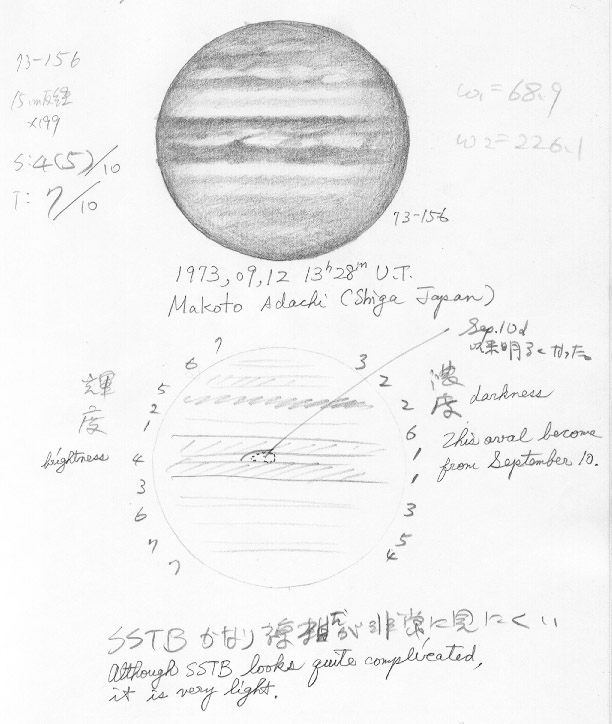 73-156
15cm反経
×199
S:4(5)/10
T: 7/10
ω1=68.9
ω2=226.1
73-156
1973, 09, 12 13h28m U.T.
Makoto Adachi (Shiga Japan)
Sep. 10d
明るくなった。
輝度
brightness
7
6
5
2
1
4
3
6
7
7
3
2
2
6
1
1
3
5
4
濃度 darkness
This oval become
from September 10.
SSTB かなり複雑だが非常に見にくい
Although SSTB looks quite complicated,
it is very light.